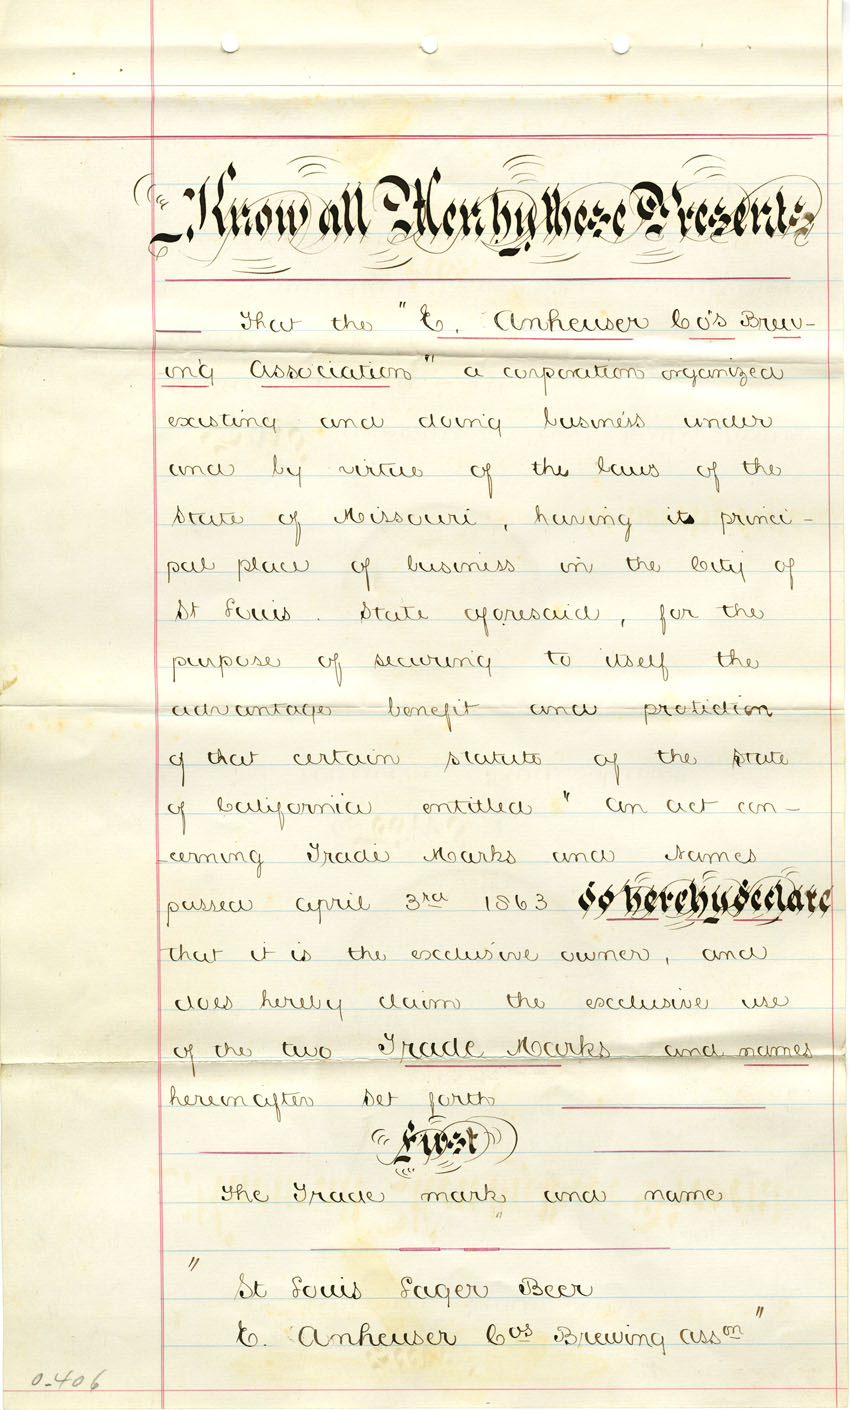 Know all Men by these Presents
That the "E. Anheuser Co's Brew-
ing Association" a corporation organized
existing and doing business under
and by virtue of the laws of the
State of Missouri, having its princi-
pal place of business in the City of
St Louis. State aforesaid, for the
purpose of securing to itself the
advantage benefit and protection
of that certain statute of the State
of California entitled "An act con-
cerning Trade Marks and Names
passed april 3rd 1863 do hereby declare
that it is the exclusive owner, and
does hereby claim the exclusive use
of the two Trade Marks and names
hereinafter set forth
First
The Trade mark and name
"
St Louis Lager Beer
E. Anheuser Cos Brewing asson"
0-406